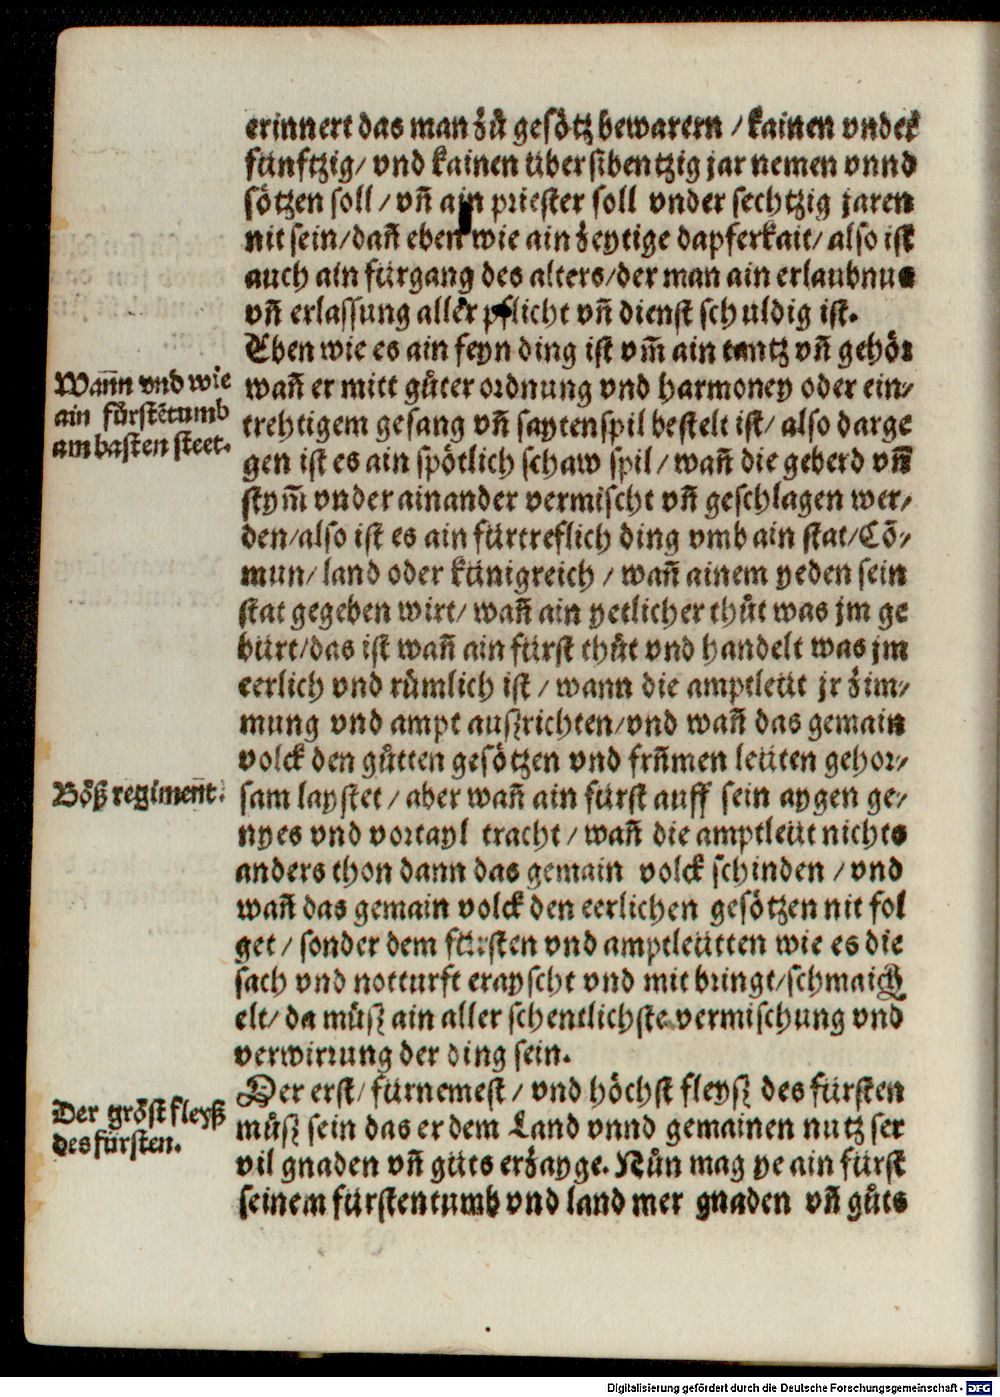 erinnert das man zů gesötz bewarern / kainen vnder
fünftzig / vnd kainen über sibentzig jar nemen vnnd
sötzen soll / vn̄ ain priester soll vnder sechtzig jaren
nit sein / dan̄ eben wie ain zeytige dapferkait / also ist
auch ain fürgang des alters / der man ain erlaubnus
vn̄ erlassung aller pflicht vn̄ dienst schuldig ist.
Eben wie es ain feyn ding ist vm̄ ain tantz vn̄ gehör
Wan̄n vnd wie
ain fürstētumb
am basten steet.
wan̄ er mitt gůter ordnung vnd harmoney oder ein/
trehtigem gesang vn̄ saytenspil bestelt ist / also darge
gen ist es ain spötlich schaw spil / wan̄ die geberd vn̄
stym̄ vnder ainander vermischt vn̄ geschlagen wer/
den / also ist es ain fürtreflich ding vmb ain stat / Cō/
mun / land oder künigreich / wan̄ ainem yeden sein
stat gegeben wirt / wan̄ ain yetlicher thůt was jm ge
bürt / das ist wan̄ ain fürst thůt vnd handelt was jm
eerlich vnd rümlich ist / wann die amptleüt jr zim/
mung vnd ampt auszrichten / vnd wan̄ das gemain
volck den gůtten gesötzen vnd frūmen leüten gehor/
Bösz regimen̄t.
sam laystet / aber wan̄ ain fürst auff sein aygen ge/
nyes vnd vortayl tracht / wan̄ die amptleüt nichts
anders thon dann das gemain volck schinden / vnd
wan̄ das gemain volck den eerlichen gesötzen nit fol
get / sonder dem fürsten vnd amptleütten wie es die
sach vnd notturft erayscht vnd mit bringt / schmaich
elt / da můsz ain aller schentlichste vermischung vnd
verwirrung der ding sein.
Der gröst fleysz
des fürsten.
Der erst / fürnemest / vnd höchst fleysz des fürsten
můsz sein das er dem Land vnnd gemainen nutz ser
vil gnaden vn̄ gůts erzayge. Nůn mag ye ain fürst
seinem fürstentumb vnd land mer gnaden vn̄ gůts
Digitalisierung gefördert durch die Deutsche Forschungsgemeinschaft - DFG